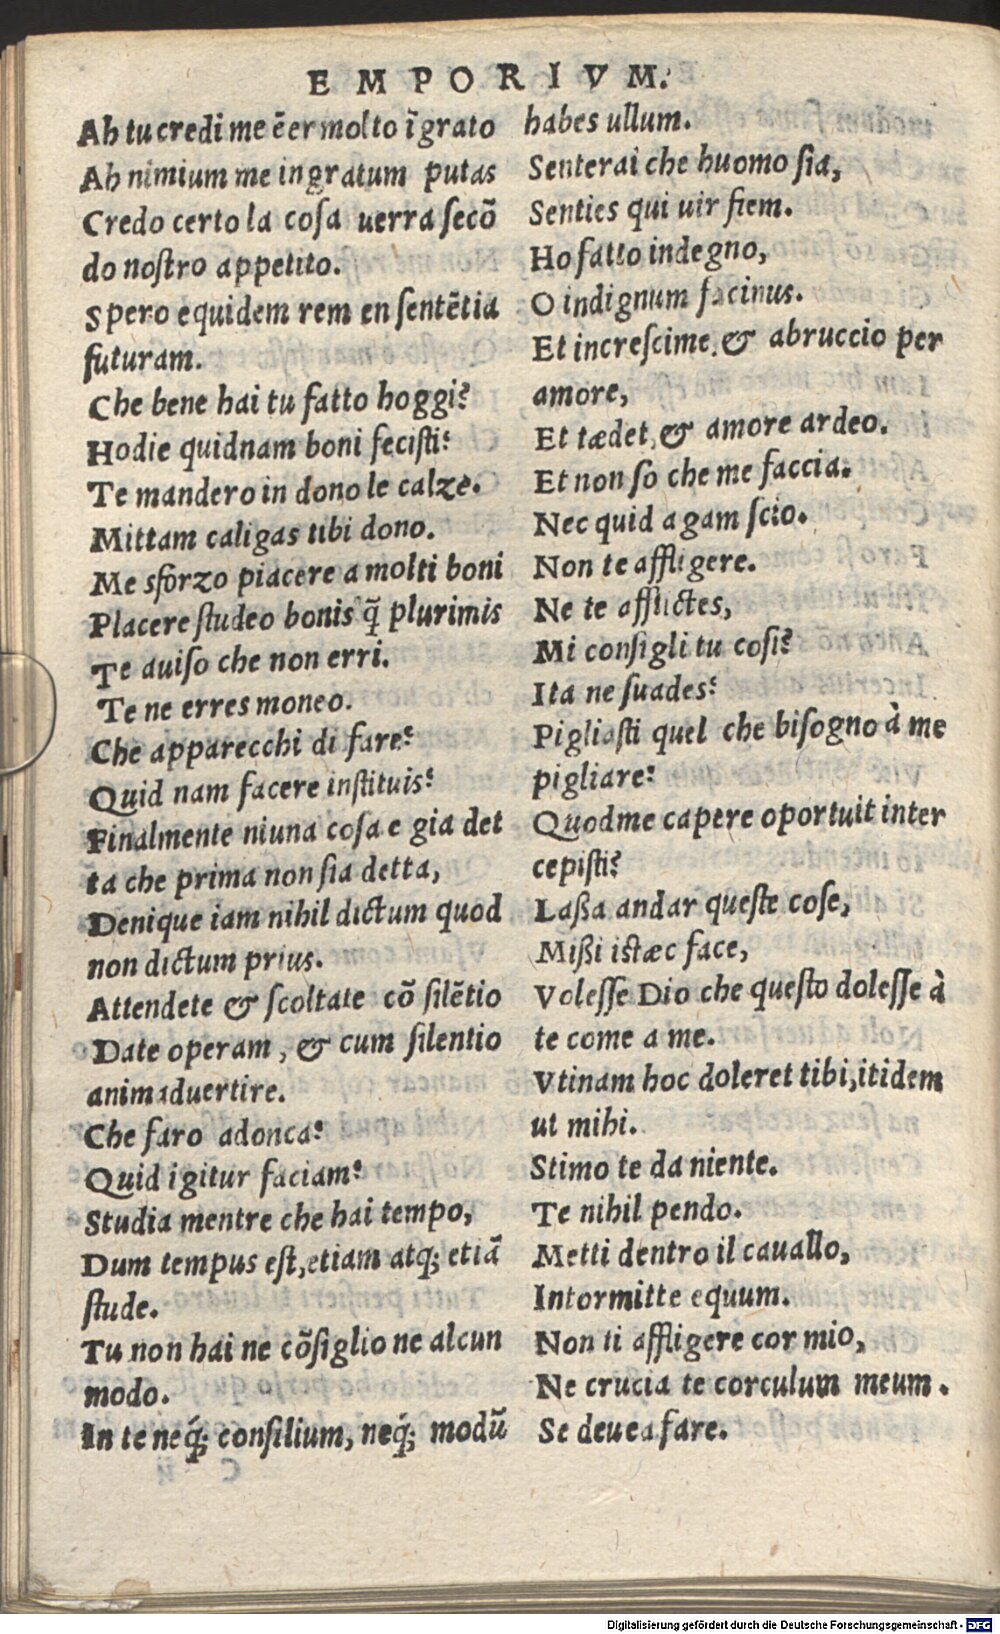 EMPORIVM.
Ah tu credi me ēer molto īgrato
Ah nimium me ingratum putas
Credo certo la cosa uerra secō
do nostro appetito.
Spero equidem rem en sentētia
futuram.
Che bene hai tu fatto hoggi?
Hodie quidnam boni fecisti?
Te mandero in dono le calze.
Mittam caligas tibi dono.
Me sforzo piacere a molti boni
Placere studeo bonis q̃ plurimis
Te auiso che non erri.
Te ne erres moneo.
Che apparecchi di fare?
Quid nam facere instituis?
Finalmente niuna cosa e gia det
ta che prima non sia detta,
Denique iam nihil dictum quod
non dictum prius.
Attendete & scoltate cō silētio
Date operam, & cum silentio
animaduertire.
Che faro adonca?
Quid igitur faciam?
Studia mentre che hai tempo,
Dum tempus est, etiam atq; etiā
stude.
Tu non hai ne cōsiglio ne alcun
modo.
In te neq́; consilium, neq́; modū
habes ullum.
Senterai che huomo sia,
Senties qui uir siem.
Ho fatto indegno,
O indignum facinus.
Et increscime, & abruccio per
amore,
Et tædet, & amore ardeo.
Et non so che me faccia.
Nec quid agam scio.
Non te affligere.
Ne te afflictes,
Mi consigli tu cosi?
Ita ne suades?
Pigliasti quel che bisogno à me
pigliare?
Quodme capere oportuit inter
cepisti?
Laßa andar queste cose,
Mißi istæc face,
Volesse Dio che questo dolesse à
te come a me.
Vtinam hoc doleret tibi, itidem
ut mihi.
Stimo te da niente.
Te nihil pendo.
Metti dentro il cauallo,
Intormitte equum.
Non ti affligere cor mio,
Ne crucia te corculum meum.
Se deuea fare.
Digitalisierung gefördert durch die Deutsche Forschungsgemeinschaft - DFG